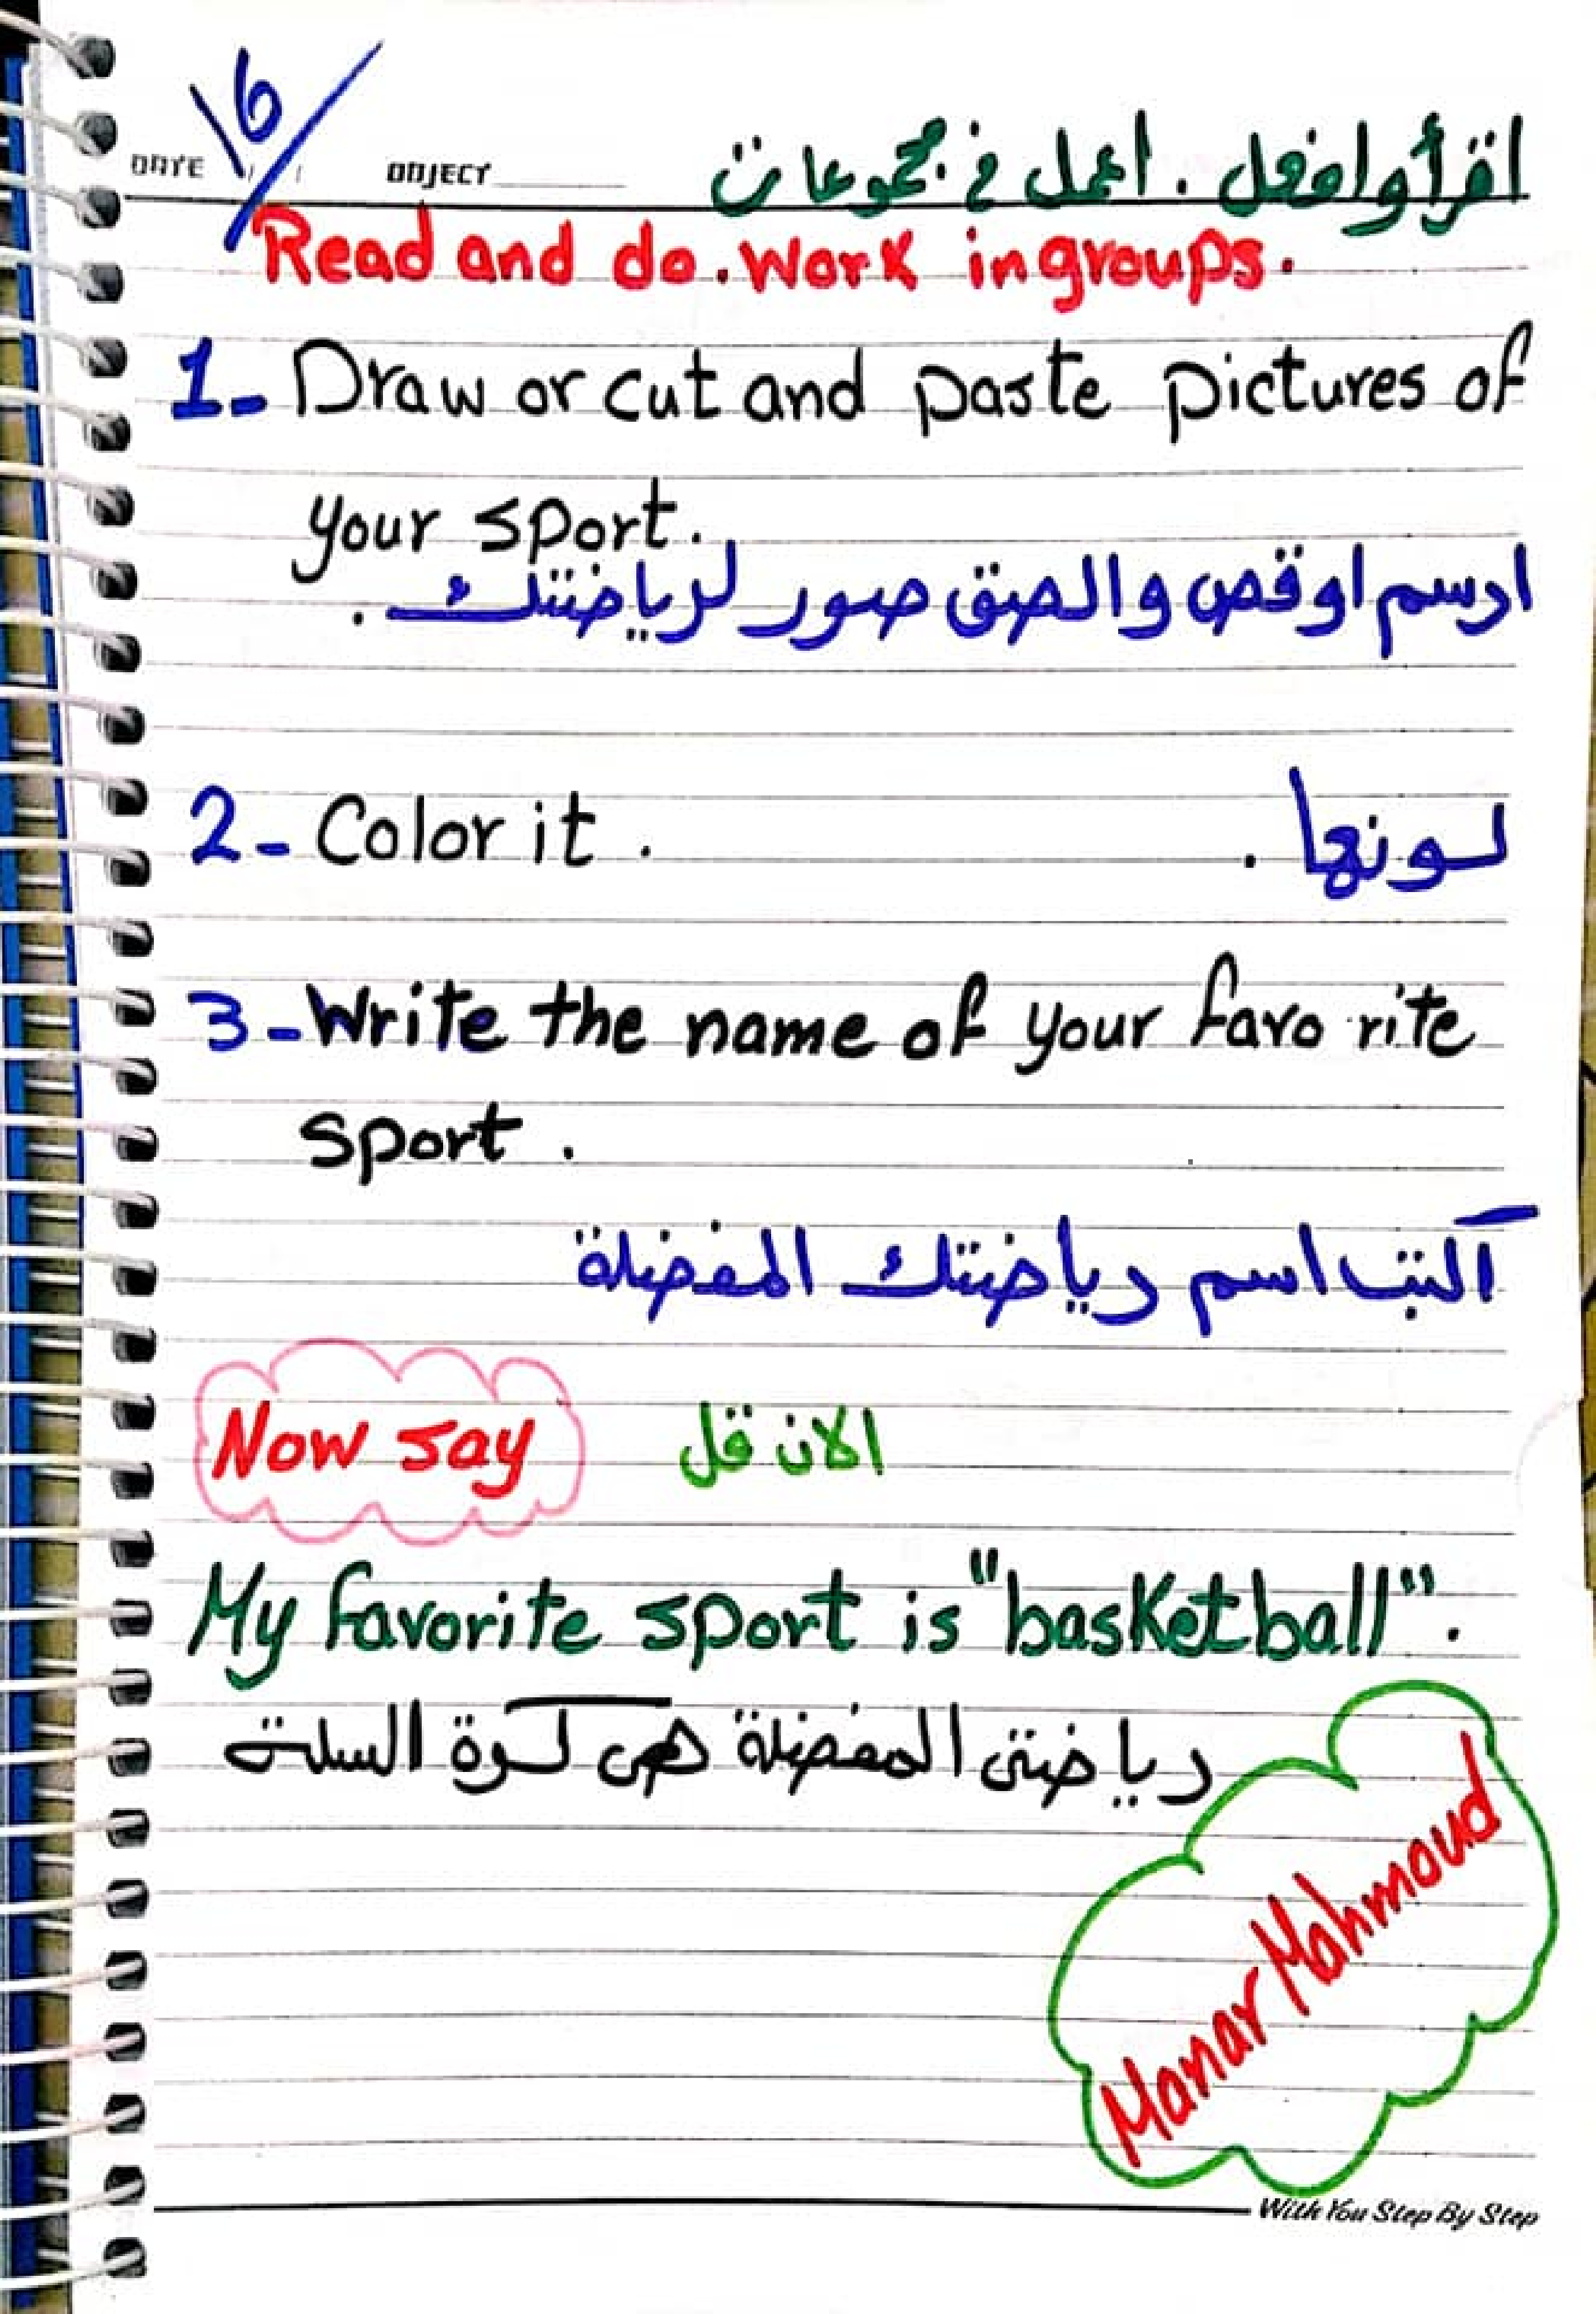 \6/
DATE / / OBJECT
اقرأ وافعل . اعمل في مجموعات
Read and do. Work in groups.
1- Draw or cut and paste pictures of
your sport.
ارسم او قص والصق صور لرياضتك .
2- Color it . لونها .
3- Write the name of your favo rite
sport .
اكتب اسم رياضتك المفضلة
Now say الان قل
My favorite sport is "basketball".
رياضتى المفضلة هى كرة السلة
Manar Mahmoud
With You Step By Step